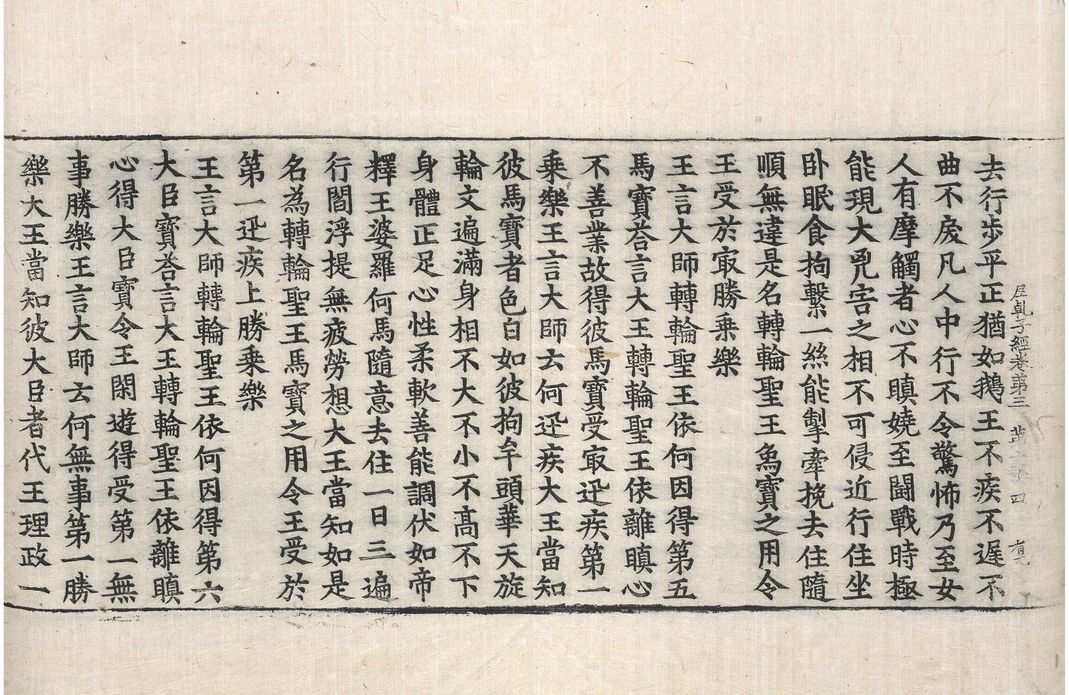 去行步平正猶如鵝王不疾不遲不
曲不戾凡人中行不令驚怖乃至女
人有摩觸者心不瞋嬈至鬪戰時極
能現大兇害之相不可侵近行住坐
卧眠食拘繫一絲能掣牽挽去住隨
順無違是名轉輪聖王象寶之用令
王受於㝡勝乗樂
王言大師轉輪聖王依何因得第五
馬寶荅言大王轉輪聖王依離瞋心
不善業故得彼馬寶受㝡迅疾第一
乗樂王言大師云何迅疾大王當知
彼馬寶者色白如彼拘牟頭華天旋
輪文遍滿身相不大不小不髙不下
身體正足心性柔軟善能調伏如帝
釋王婆羅何馬隨意去住一日三遍
行閻浮提無疲勞想大王當知如是
名為轉輪聖王馬寶之用令王受於
第一迅疾上勝乗樂
王言大師轉輪聖王依何因得第六
大臣寶荅言大王轉輪聖王依離瞋
心得大臣寶令王閑遊得受第一無
事勝樂王言大師云何無事第一勝
樂大王當知彼大臣者代王理政一
尼乹子經卷第三 四